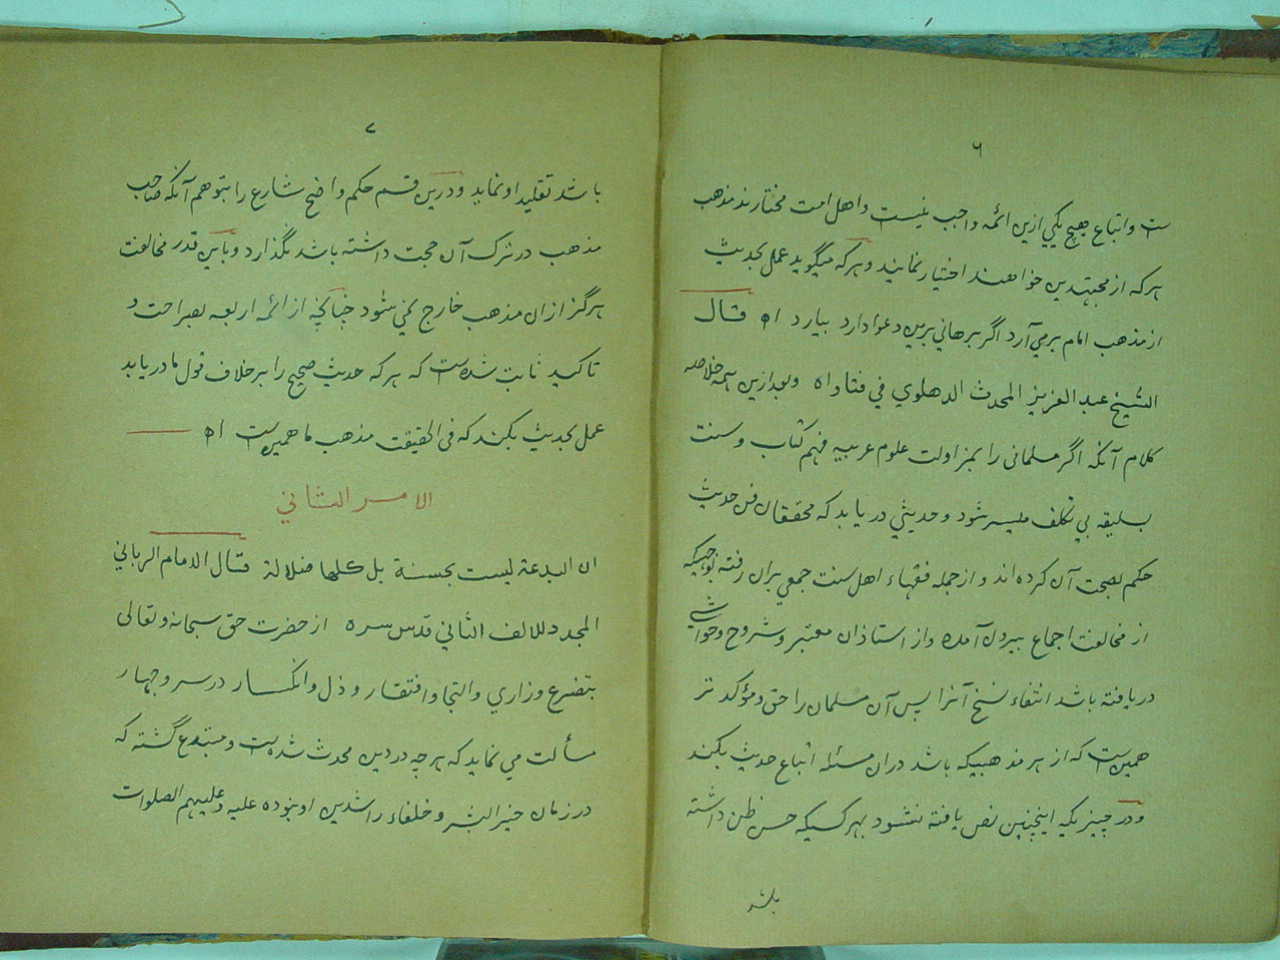 ٦
ست و اتباع هیچ یکي ازین ائمه واجب نیست و اهل امت مختارند مذهب
هر که از مجتهدین خواهند اختیار نمایند و هر که میگوید عمل بحدیث
از مذهب امام برمي آرد اگر برهاني برین دعوا دارد بیارد اه قال
الشیخ عبد العزیز المحدث الدهلوي في فتاواه و بعد ازین همه خلاصه
کلام آنکه اگر مسلمانی را بمزاولت علوم عربیه فهم کتاب و سنت
بسلیقه بي تکلف میسر شود و حدیثي دریابد که محققان فن حدیث
حکم بصحت آن کرده اند و از جمله فقهاء اهل سنت جمعي بران رفته بوجهیکه
از مخالفت اجماع بیرون آمده و از استاذان معتبر و شروح و حواشي
دریافته باشد انتفاء نسخ آنرا پس آن مسلمان را حق و مؤکد تر
همین ست که از هر مذهبیکه باشد دران مسئله اتباع حدیث بکند
و در چیزیکه اینچنین نص یافته نشود بهر کسیکه حسن ظن داشته
باشد
٧
باشد تقلید او نماید و درین قسم حکم واضح شارع را بتوهم آنکه صاحب
مذهب در ترک آن حجت داشته باشد نگذارد و باین قدر مخالفت
هرگز ازان مذهب خارج نمي شود چنانچه از ائمه اربعه بصراحت و
تاکید ثابت شده ست که هر که حدیث صحیح را بر خلاف قول ما دریابد
عمل بحدیث بکند که فی الحقیقت مذهب ما همین ست اه
الامر الثاني
ان البدعة لیست بحسنة بل کلها ضلالة قال الامام الرباني
المجدد للالف الثاني قدس سره از حضرت حق سبحانه و تعالی
بتضرع و زاري و التجا و افتقار و ذل و انکسار در سر و جهار
مسألت مي نماید که هر چه در دین محدث شده ست و مبتدع گشته که
در زمان خیر البشر و خلفاء راشدین او نبوده علیه و علیهم الصلوات